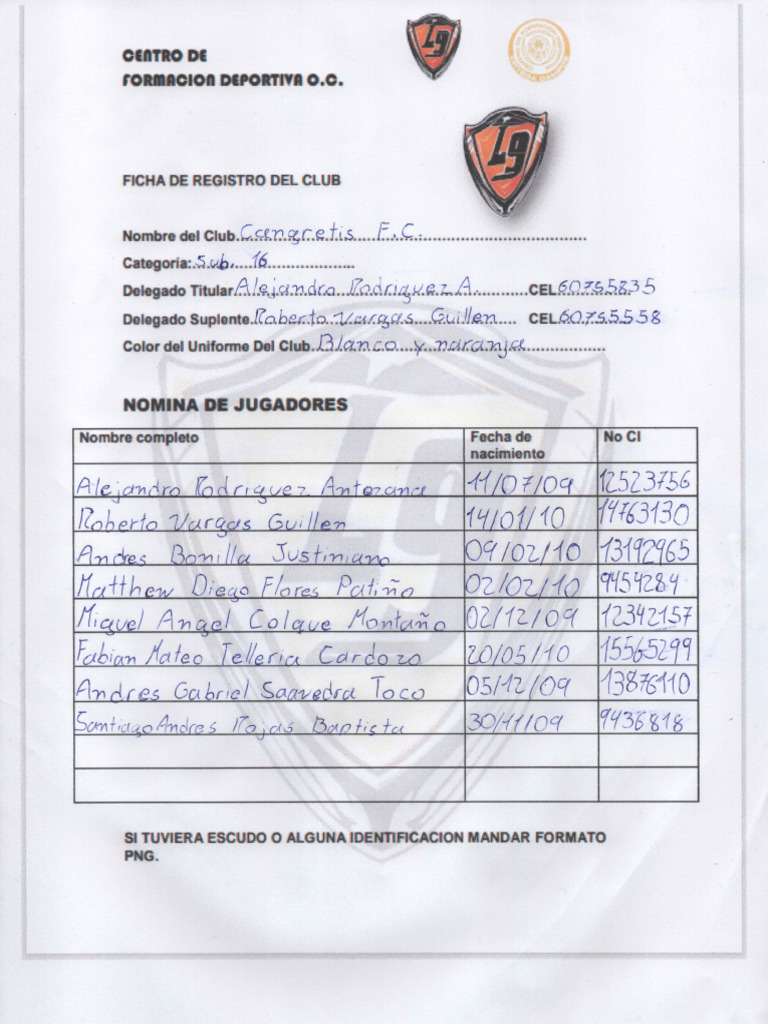 L9
CENTRO DE
FORMACION DEPORTIVA O.C.
L9
FICHA DE REGISTRO DEL CLUB
Nombre del Club Cangretis F.C.
Categoria: Sub. 16
Delegado Titular Alejandro Rodriguez A. CEL 60755835
Delegado Suplente Roberto Vargas Guillen CEL 60755558
Color del Uniforme Del Club Blanco y naranja
NOMINA DE JUGADORES
Nombre completo Fecha de nacimiento No CI
Alejandro Rodriguez Antezana 11/07/09 12523756
Roberto Vargas Guillen 14/01/10 14763130
Andres Bonilla Justiniano 09/02/10 13192965
Matthew Diego Flores Patiño 02/02/10 9454284
Miguel Angel Colque Montaño 02/12/09 12342157
Fabian Mateo Telleria Cardozo 20/05/10 15565299
Andres Gabriel Saavedra Toco 05/12/09 13876110
Santiago Andres Rojas Baptista 30/11/09 9436818
SI TUVIERA ESCUDO O ALGUNA IDENTIFICACION MANDAR FORMATO
PNG.